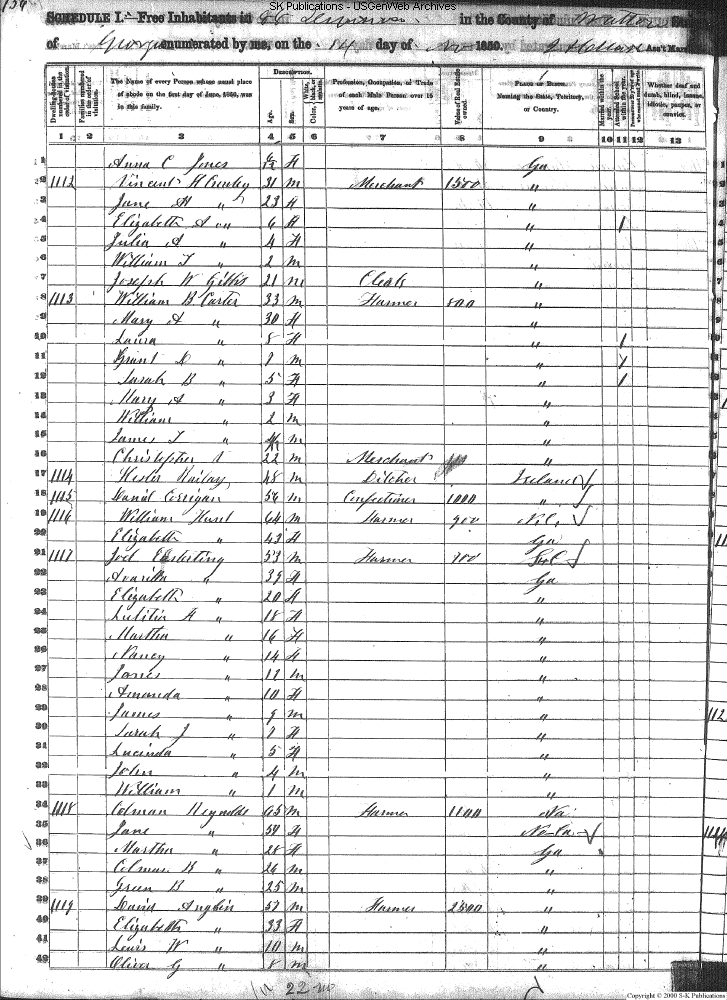 SK Publications - USGenWeb Archives
SCHEDULE I.—Free Inhabitants in in the County of Walton
of Georgia enumerated by me, on the 14 day of Nov 1850. Ass't Mars
Dwelling-houses numbered in the order of visitation.
Families numbered in the order of visitation.
The Name of every Person whose usual place of abode on the first day of June, 1850, was in this family.
DESCRIPTION.
Age.
Sex.
Color,
Profession, Occupation, or Trade of each Male Person over 15 years of age.
Value of Real Estate owned.
PLACE OF BIRTH. Naming the State, Territory, or Country.
Married within the year.
Attended School within the year.
Whether deaf and dumb, blind, insane, idiotic, pauper, or convict.
1 2 3 4 5 6 7 8 9 10 11 12 13
1 Anna C Jones H Ga
2 1112 Vincent H 31 m Merchant 1500 "
3 Jane H " 23 H "
4 Elizabeth A " 6 H " 1
5 Julia A " 4 H "
6 William T " 2 m "
7 Joseph W Gibbs 21 m Clerk "
8 1113 William B Carter 33 m Farmer 800 "
9 Mary A " 30 H "
10 Laura " 8 H " 1
11 Grant D " 7 m " 1
12 Sarah B " 5 H " 1
13 Mary A " 3 H "
14 William " 2 m "
15 James T " m "
16 Christopher 22 m Merchant "
17 1114 48 m Ditcher Ireland
18 1115 Daniel Corrigan 56 m Confectioner 1000 "
19 1116 William Hunt 64 m Farmer 900 N.C.
20 Elizabeth " 43 H Ga
21 1117 Joel Easterting 53 m Farmer 700 S.C
22 Avarilla " 39 H Ga
23 Elizabeth " 20 H "
24 H " 18 H "
25 Martha " 16 H "
26 Nancy " 14 H "
27 Jones " 12 m "
28 Amanda " 10 H "
29 James " 9 m "
30 Sarah J " 7 H "
31 Lucinda " 5 H "
32 John " 4 m "
33 William " 1 m "
34 1118 Colman Reynolds 65 m Farmer 1100 Va
35 Jane " 54 H No Ca
36 Martha " 28 H Ga
37 Colman B " 26 m "
38 Green B " 25 m "
39 1119 David Anglin 57 m Farmer 2500 "
40 Elizabeth " 33 H "
41 Lewis W " 10 m "
42 Oliver G " 8 m "
22 m
Copyright © 2000 S-K Publications